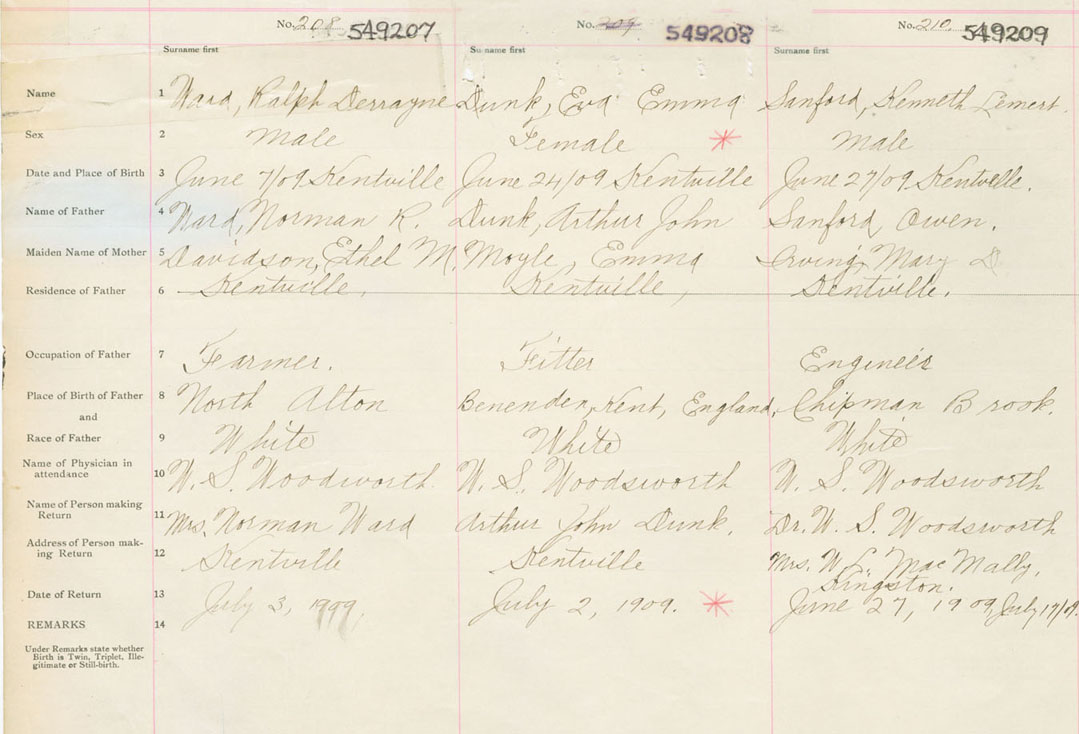 No. 208 549207 No. 209 549208 No. 210. 549209
Surname first Surname first Surname first
Name 1 Ward, Ralph Derrayne Dunk, Eva Emma Sanford, Kenneth Lemert.
Sex 2 Male Female * Male
Date and Place of Birth 3 June 7/09 Kentville June 24/09 Kentville June 27/09 Kentville.
Name of Father 4 Ward, Norman R. Dunk, Arthur John Sanford, Owen.
Maiden Name of Mother 5 Davidson, Ethel M. Moyle, Emma Irving, Mary D
Residence of Father 6 Kentville, Kentville, Kentville.
Occupation of Father 7 Farmer. Fitter Engineer
Place of Birth of Father 8 North Alton Benenden, Kent, England, Chipman Brook.
and
Race of Father 9 White White White
Name of Physician in
attendance 10 W. S. Woodworth. W. S. Woodsworth W. S. Woodsworth
Name of Person making
Return 11 Mrs. Norman Ward Arthur John Dunk, Dr. W. S. Woodsworth
Address of Person mak-
ing Return 12 Kentville Kentville Mrs. W. S. MacMally,
Kingston.
Date of Return 13 July 3, 1909, July 2, 1909. * June 27, 1909, July 17/09.
REMARKS 14
Under Remarks state whether
Birth is Twin, Triplet, Ille-
gitimate or Still-birth.